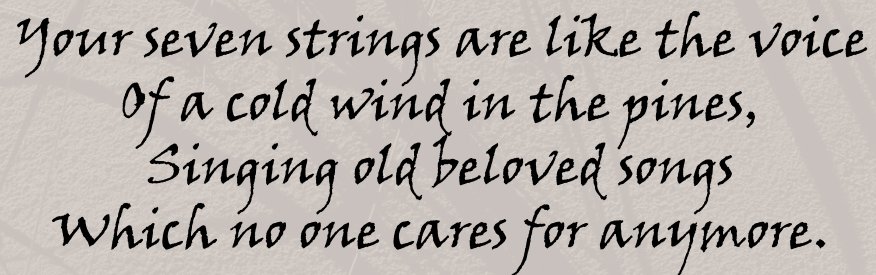 Your seven strings are like the voice
Of a cold wind in the pines,
Singing old beloved songs
Which no one cares for anymore.